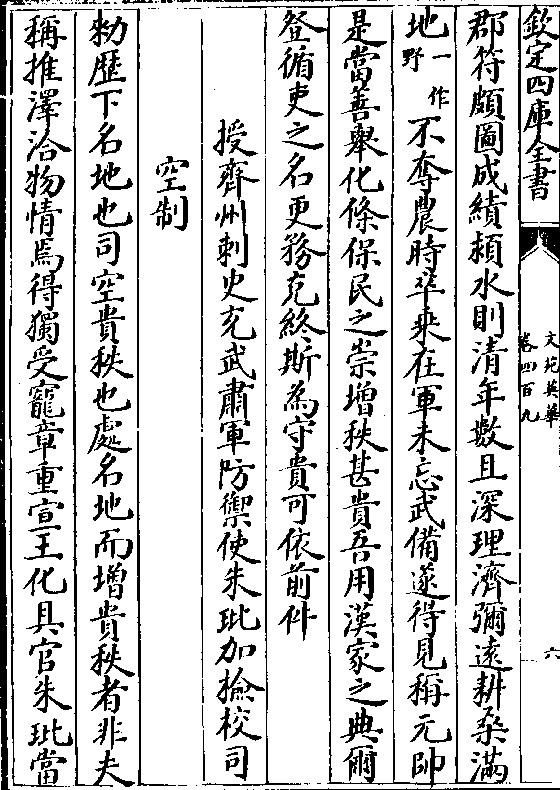 欽定四庫全書
文苑英華
卷四百九
六
郡符頗圖成績潁水則清年數且深理濟彌遠耕桑滿
地一作野不奪農時卒乘在軍未忘武備遂得見稱元帥
是當善舉化條保民之崇增秩甚貴吾用漢家之典爾
登循吏之名更務克終斯為守貴可依前件
授齊州刺史充武肅軍防禦使朱玭加撿校司
空制
勑歷下名地也司空貴秩也處名地而增貴秩者非夫
稱推澤洽物情焉得獨受寵章重宣王化具官朱玭當